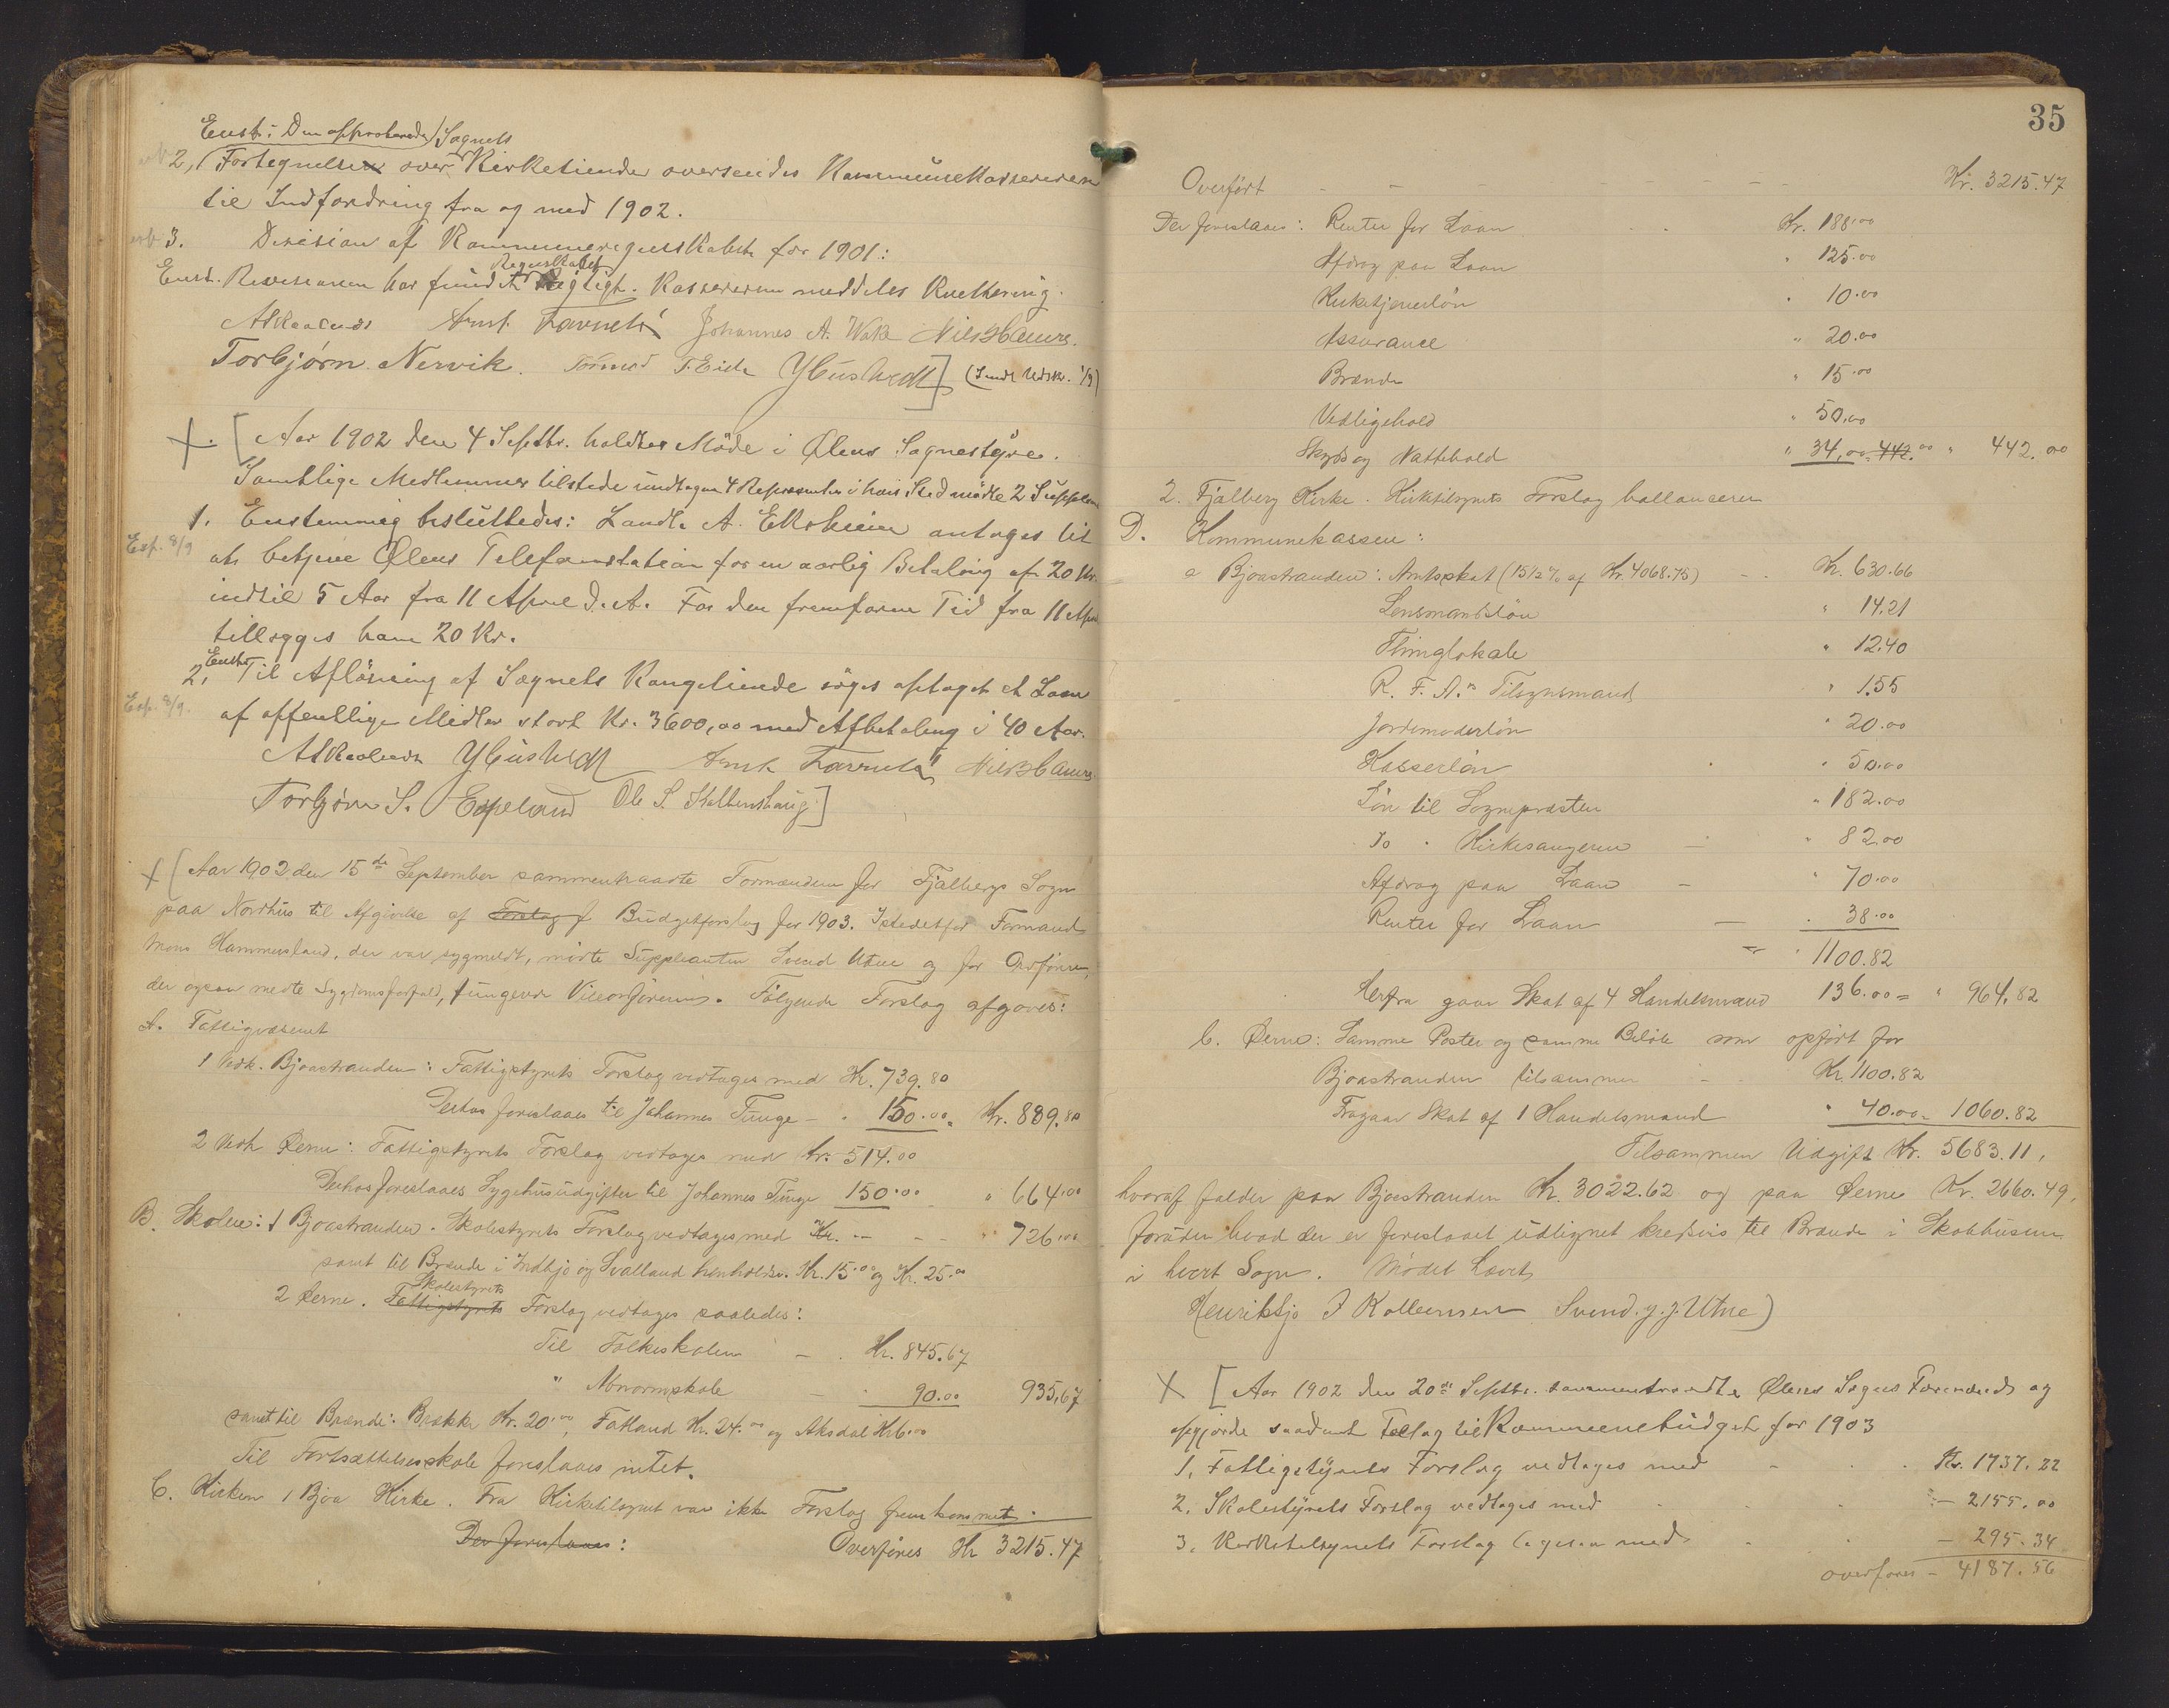 Enst: Den approberede Sognets
2, Fortegnelse over Kirketiender oversendes Kommunekassereren
til Indfordring fra og med 1902.
3. Desision af Kommuneregnskabet for 1901:
Regnskabet
Enst. Revisionen har fundet rigtigt. Kassereren meddeles Kvittering.
Johannes A. Vaka Nils Hauer
Torbjørn Nervik. Tormod T. Eide (Sendt Udskr. 1/9)
[Aar 1902 den 4 Septbr. holdtes Møde i Ølens Sognestyre.
Samtlige Medlemmer tilstede undtagen 4 Repræsentr i hvis Sted mødte 2 Supplean
1. Enstemmig besluttedes: Landh. A. Eksheim antages til
Exp. 8/9
at betjene Ølens Telefonstation for en aarlig Betaling af 20 Kr.
indtil 5 Aar fra 11 April d. A. For den fremfarne Tid fra 11 Apr
tillægges ham 20 Kr.
Enst.
2, Til Afløsning af Sognets Kongetiende søges optaget et Laan
Exp. 8/9.
af offentlige Midler stort Kr. 3600,00 med Afbetaling i 40 Aar.
Torbjørn S. Espeland Ole S. Kalbenshaug]
+ [Aar 1902 den 15de September sammentraadte Formændene for Fjælbergs Sogn
paa Nordhus til Afgivelse af Forslag f Budgetforslag for 1903. Istedetfor Formand
Mons Hammersland, der var sygmeldt, mødte Suppleanten Svend Utne og for Ordføren,
der ogsaa meldte Sygdomsforfald, fungerede Viceordføreren. Følgende Forslag afgaves:
A. Fattigvæsenet
1 Vedk. Bjoastranden: Fattigstyrets Forslag vedtages med Kr. 739.80
Deshos foreslaaes til Johannes Tunge - " 150.00 " Kr. 889.80
2 Vedk Øerne: Fattigstyrets Forslag vedtages med Kr. 514.00
Deshos foreslaaes Sygehusudgifter til Johannes Tunge 150.00 " 664.00
B. Skolene: 1 Bjoastranden. Skolestyrets Forslag vedtages med Kr. - - - " 726.00
samt til Brænde i Indbjo og Svalland henholdsv. Kr. 15.00 og Kr. 25.00
Skolestyrets
2 Øerne. Fattigstyrets Forslag vedtages saaledes:
Til Folkeskolen - . Kr. 845.67
" Abnormskole - " 90.00 935.67
samt til Brænde: Brække Kr. 20.00, Fatland Kr. 24.00 og Aksdal Kr 6.00
Til Fortsættelsesskole foreslaaes intet.
C. Kirken 1 Bjoa Kirke. Fra Kirketilsynet var ikke Forslag fremkommet.
Der foreslaaes: Overføres Kr 3215.47
35
Overført - - - - - - - Kr. 3215.47
Der foreslaaes: Renter for Laan - - Kr. 188.00
Afdrag paa Laan " 125.00
Kirketjenerløn " 10.00
Assurance " 20.00
Brænde " 15.00
Vedligehold " 50.00
Skyds og Nattehold " 34,00 442.00 " 442.00
2. Fjælberg Kirke. Kirketilsynets Forslag ballancerer
D. Kommunekassen:
a Bjoastranden: Amtsskat (15½% af Kr. 4068.75) - - Kr. 630.66
Lensmandsløn " 14.21
Thinglokale " 12.40
R. F. A.s Tilsynsmand " 1.55
Jordemoderløn " 20.00
Kasserløn " 50.00
Løn til Sognepræsten " 182.00
Do " Kirkesangeren - " 82.00
Afdrag paa Laan - " 70.00
Renter for Laan - " 38.00
" 1100.82
Herfra gaar Skat af 4 Handelsmænd 136.00 = " 964.82
b. Øerne: Samme Poster og samme Beløb som opført for
Bjoastranden tilsammen - Kr. 1100.82
Fragaar Skat af 1 Handelsmand " 40.00 = 1060.82
Tilsammen Udgift Kr. 5683.11,
hvoraf falder paa Bjoastranden Kr. 3022.62 og paa Øerne Kr. 2660.49,
foruden hvad der er foreslaaet udlignet kredsvis til Brænde i Skolehusene
i hvert Sogn. Mødet hævet
Henriksjo J Kolbensen Svend. J. J. Utne)
X [Aar 1902 den 20de Septbr. sammentraadte Ølens Sogns Formænd og
afgjorde saadant Forslag til Kommunebudget for 1903
1, Fattigstyrets Forslag vedtages med - - - Kr. 1737.22
2. Skolestyrets Forslag vedtages med - - - 2155.00
3, Kirketilsynets Forslag ligesaa med - - - 295.34
overføres - 4187.56